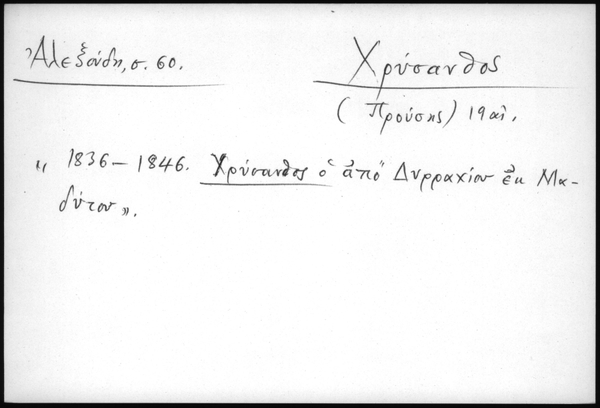 Ἀλεξούδη, σ. 60.
Χρύσανθος
(Προύσης) 19 αἰ.
“ 1836 – 1846. Χρύσανθος ὁ ἀπὸ Δυρραχίου ἐκ Μα-
δύτου”.